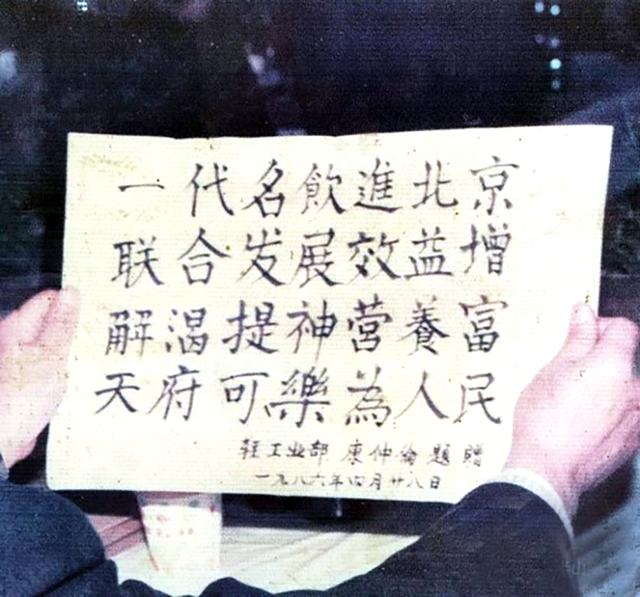 一代名飲進北京
联合发展效益增
解渴提神营養富
天府可樂為人民
轻工业部 康仲倫 题贈
一九八六年四月廿八日